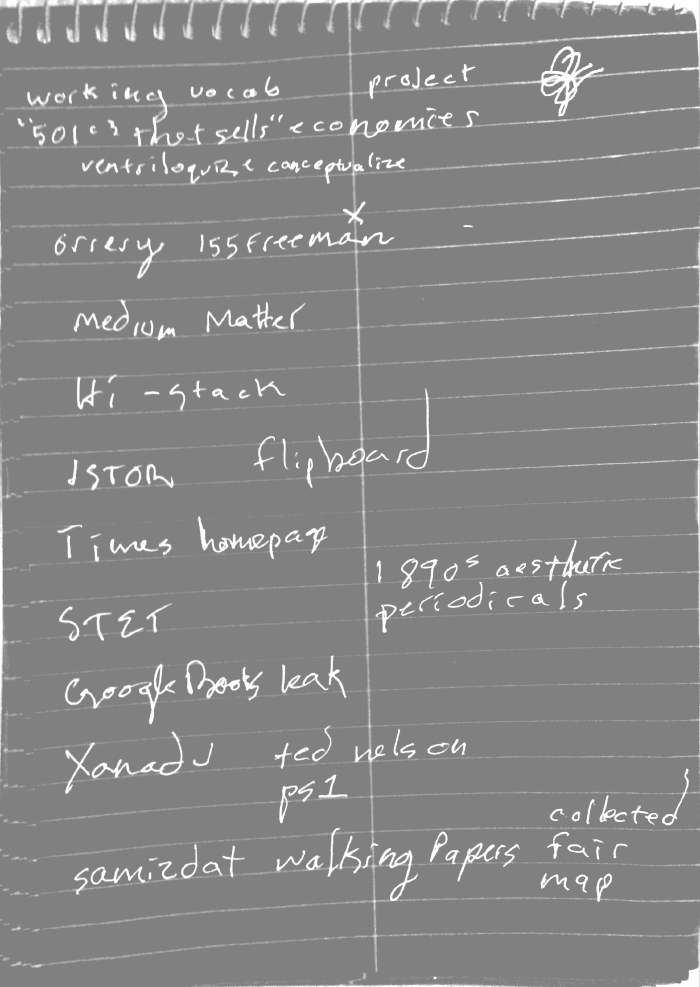 working vocab project
"501c3 that sells" economies
ventriloquize conceptualize
x
orrery 155 freeman -
Medium Matter
Hi-stack
JSTOR flipboard
Times homepage
1890s aesthetic
periodicals
STET
Google Books leak
Xanadu ted nelson
ps1
samizdat walking Papers
collected
fair
map